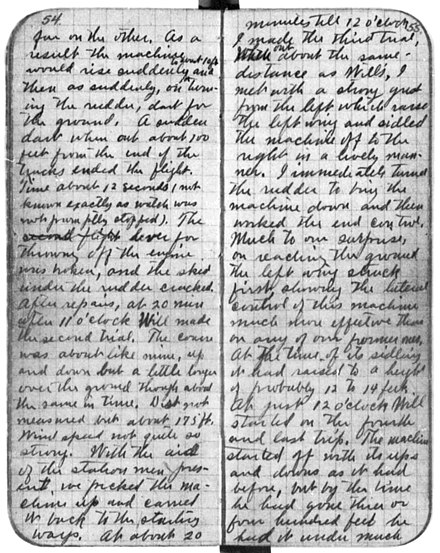 54.
far on the other. As a
result the machine
would rise suddenly to about 10 ft. and
then as suddenly, on turn-
ing the rudder, dart for
the ground. A sudden
dart when out about 100
feet from the end of the
tracks ended the flight.
Time about 12 seconds (not
known exactly as watch was
not promptly stopped). The
second flight lever for
throwing off the engine
was broken, and the skid
under the rudder cracked.
After repairs, at 20 min.
after 11 o'clock Will made
the second trial. The course
was about like mine, up
and down but a little longer
over the ground though about
the same in time. Dist. not
measured but about 175 ft.
Wind speed not quite so
strong. With the aid
of the station men pres-
ent, we picked the ma-
chine up and carried
it back to the starting
ways. At about 20
55.
minutes till 12 o'clock
I made the third trial.
When out about the same
distance as Will's, I
met with a strong gust
from the left which raised
the left wing and sidled
the machine off to the
right in a lively man-
ner. I immediately turned
the rudder to bring the
machine down and then
worked the end control.
Much to our surprise,
on reaching the ground
the left wing struck
first, showing the lateral
control of this machine
much more effective than
on any of our former ones.
At the time of its sidling
it had raised to a height
of probably 12 to 14 feet.
At just 12 o'clock Will
started on the fourth
and last trip. The machine
started off with its ups
and downs as it had
before, but by the time
he had gone three or
four hundred feet he
had it under much